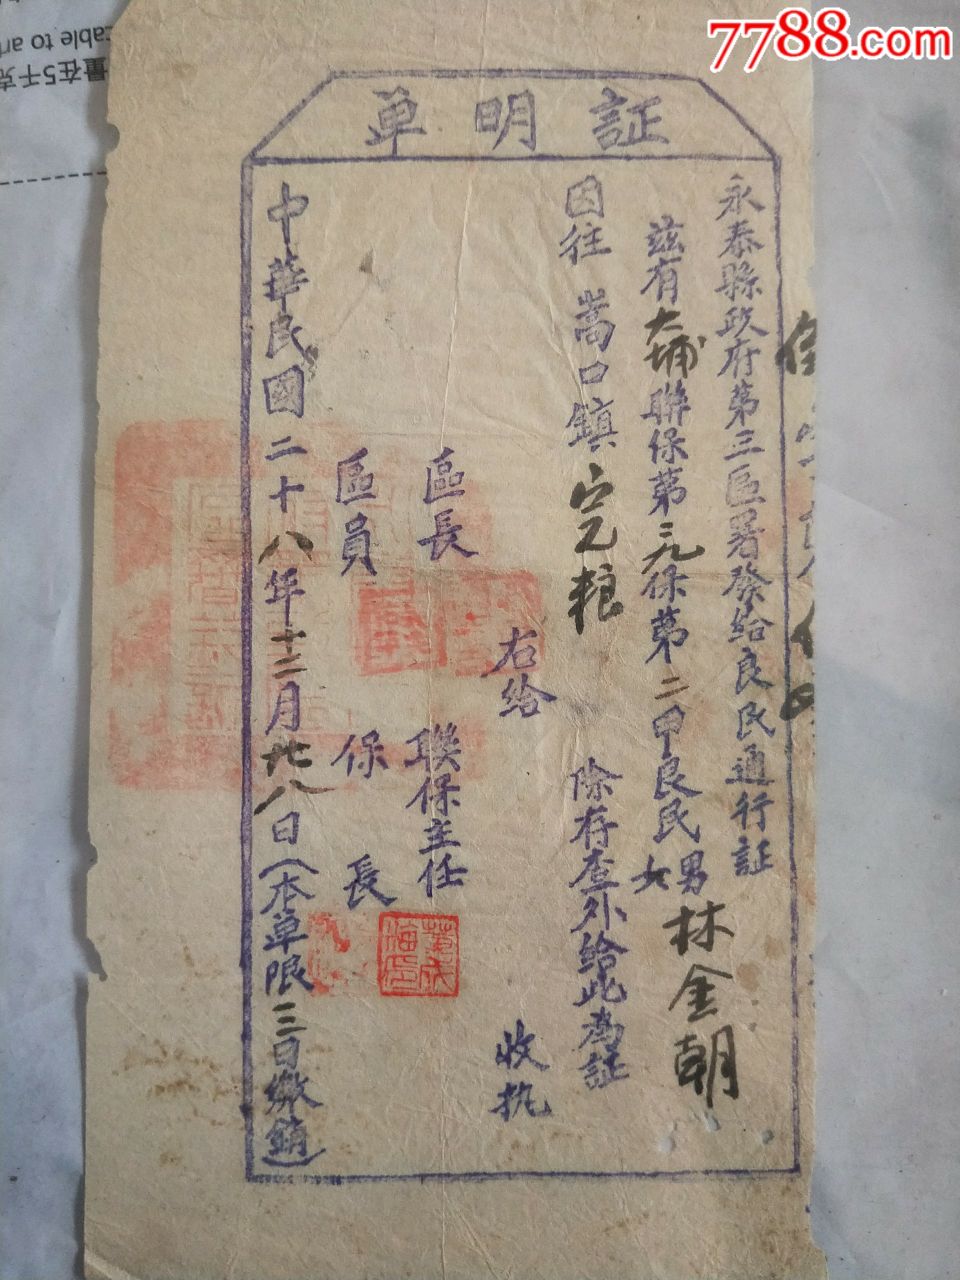 7788.com
証明单
永泰縣政府第三區署發給良民通行証
茲有大埔聯保第三九保第二甲良民男女林金朝
因往嵩口鎮完粮除存查外給此為証
右給收执
區長聯保主任
區員保長
中華民國二十八年十二月廿八日(本单限三日繳銷)
量在5千克
cable to